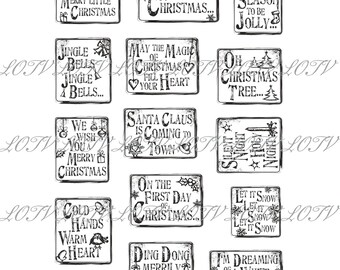 MERRY LITTLE
CHRISTMAS
CHRISTMAS...
SEASON
TO BE
JOLLY...
JINGLE
BELLS
JINGLE
BELLS...
MAY THE MAGIC
OF
CHRISTMAS
FILL YOUR
HEART
OH
CHRISTMAS
TREE...
LOTV
LOTV
LOTV
WE
WISH
YOU A
MERRY
CHRISTMAS
SANTA CLAUS
IS COMING TO
TOWN
SILENT
NIGHT
HOLY
NIGHT
LOTV
LOTV
LOTV
ON THE
FIRST DAY
OF
CHRISTMAS...
LET IT
SNOW
LET IT SNOW
LET IT SNOW
COLD
HANDS
WARM
HEART
LOTV
LOTV
LOTV
DING DONG
MERRILY
I'M DREAMING
OF A
WHITE